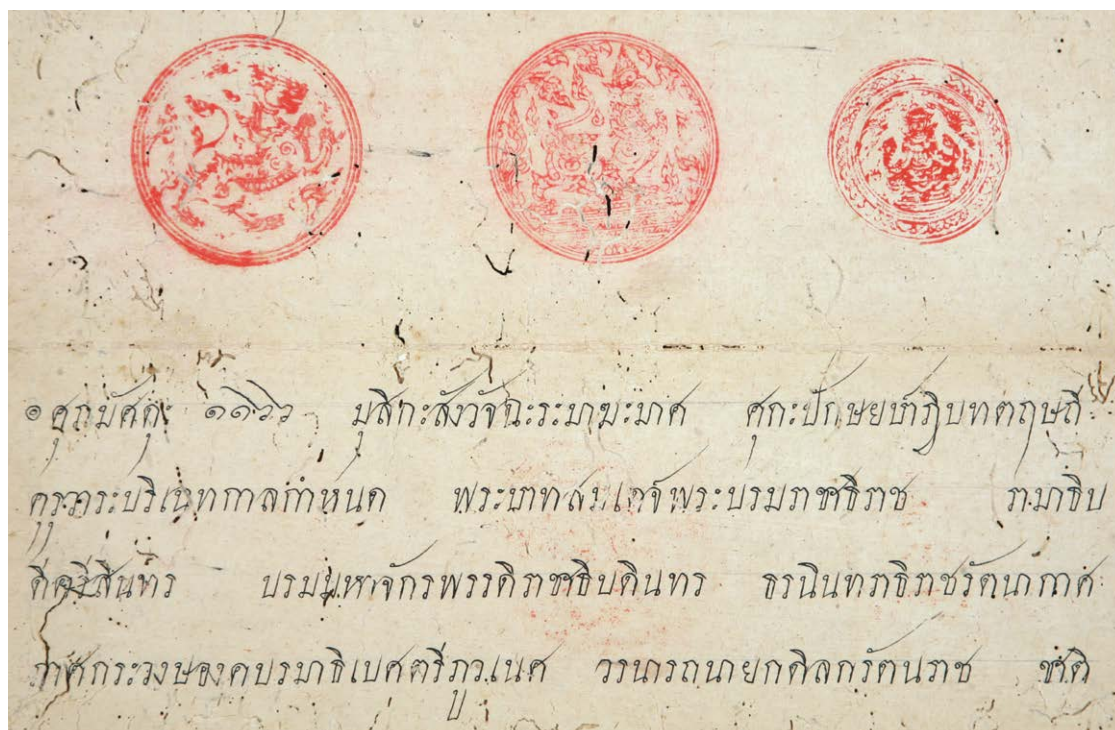 ๏ ศุภมัศดุ ๑๑๖๖ มุสิกะสังวัจฉะระมาฆะมาศ ศุกะปักษยปาฏิบทดฤษถี
คุรุวาระบริเฉทกาลกำหนด พระบาทสมเดจพระบรมราชาธิราช รามาธิบ
ดีศรีสินทร บรมมหาจักรพรรดิราชาธิบดินทร ธรนินทราธิราชรัตนากาศ
ภาศกระวงษองคบรมาธิเบศตรีภูวเนศ วรนารถนายกดิลกรัตนราช ชาติ